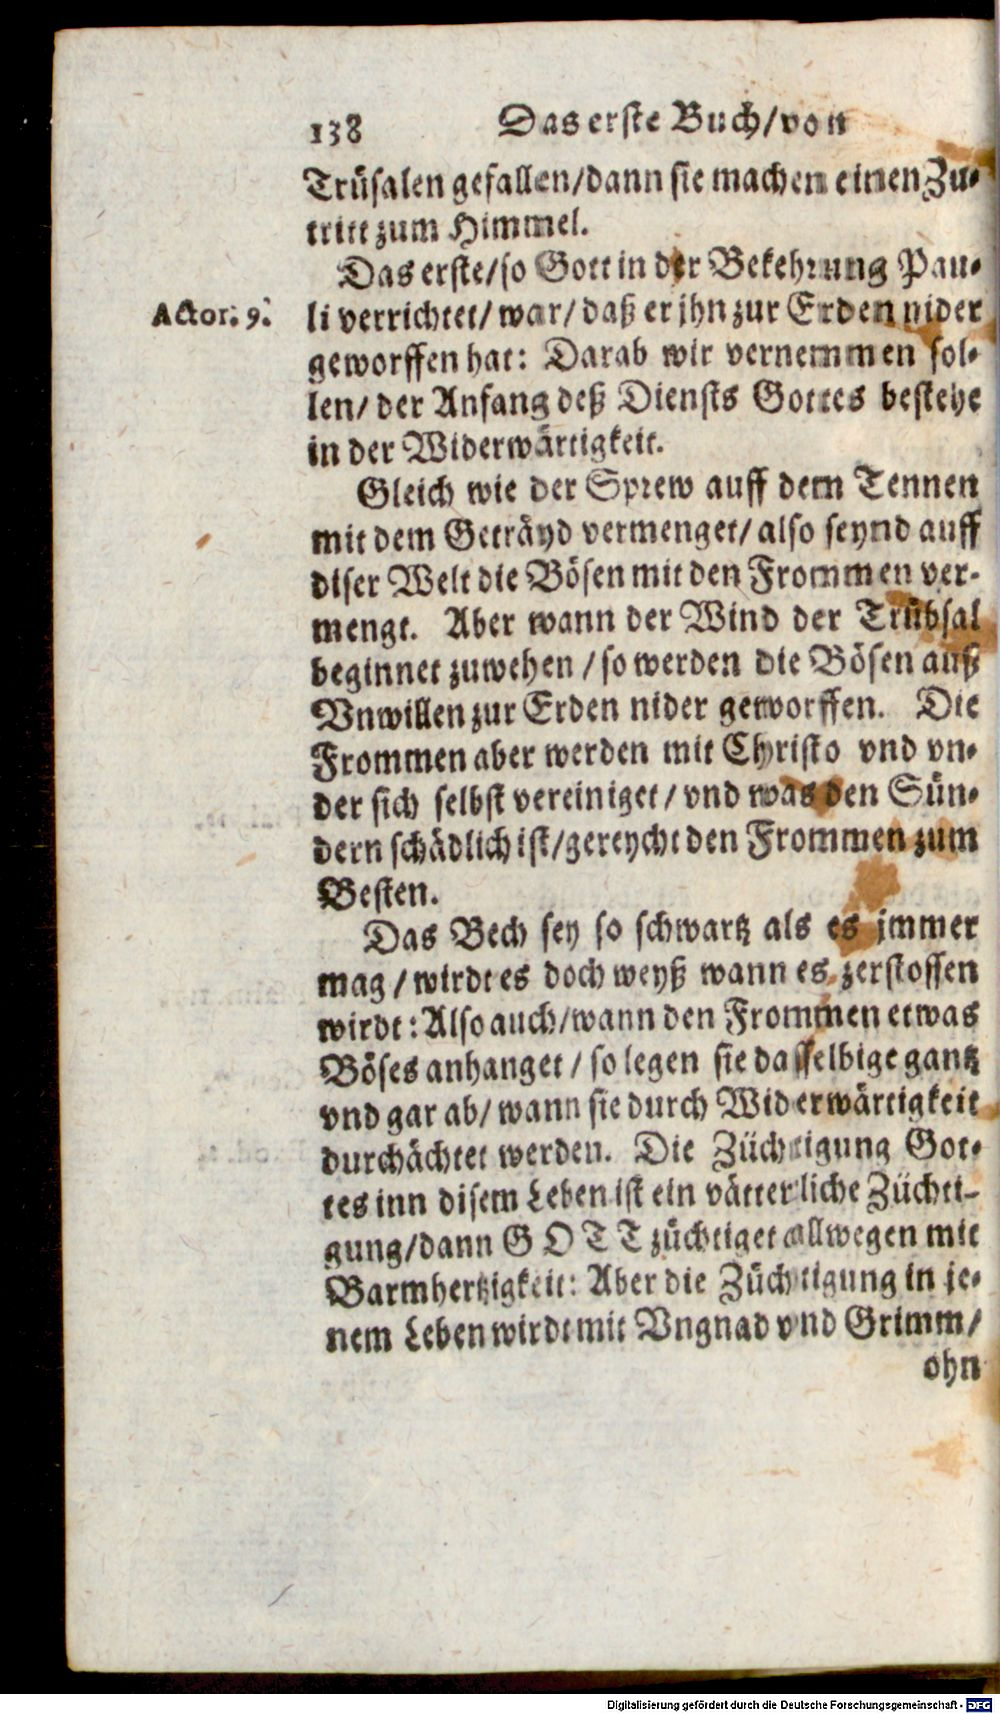 138 Das erste Buch/von
Trüsalen gefallen/dann sie machen einen Zu-
tritt zum Himmel.
Das erste/so Gott in der Bekehrung Pau-
Actor. 9. li verrichtet/ war/ daß er jhn zur Erden nider
geworffen hat: Darab wir vernemmen sol-
len/ der Anfang deß Diensts Gottes bestehe
in der Widerwärtigkeit.
Gleich wie der Sprew auff dem Tennen
mit dem Geträyd vermenget/ also seynd auff
diser Welt die Bösen mit den Frommen ver-
mengt. Aber wann der Wind der Trübsal
beginnet zuwehen / so werden die Bösen auß
Vnwillen zur Erden nider geworffen. Die
Frommen aber werden mit Christo vnd vn-
der sich selbst vereiniget/ vnd was den Sün-
dern schädlich ist/gereycht den Frommen zum
Besten.
Das Bech sey so schwartz als es jmmer
mag / wirdt es doch weyß wann es zerstossen
wirdt: Also auch/wann den Frommen etwas
Böses anhanget / so legen sie dasselbige gantz
vnd gar ab/ wann sie durch Widerwärtigkeit
durchächtet werden. Die Züchtigung Got-
tes inn disem Leben ist ein vätterliche Züchti-
gung/dann GOTT züchtiget allwegen mit
Barmhertzigkeit: Aber die Züchtigung in je-
nem Leben wirdt mit Vngnad vnd Grimm/
ohn
Digitalisierung gefördert durch die Deutsche Forschungsgemeinschaft - DFG